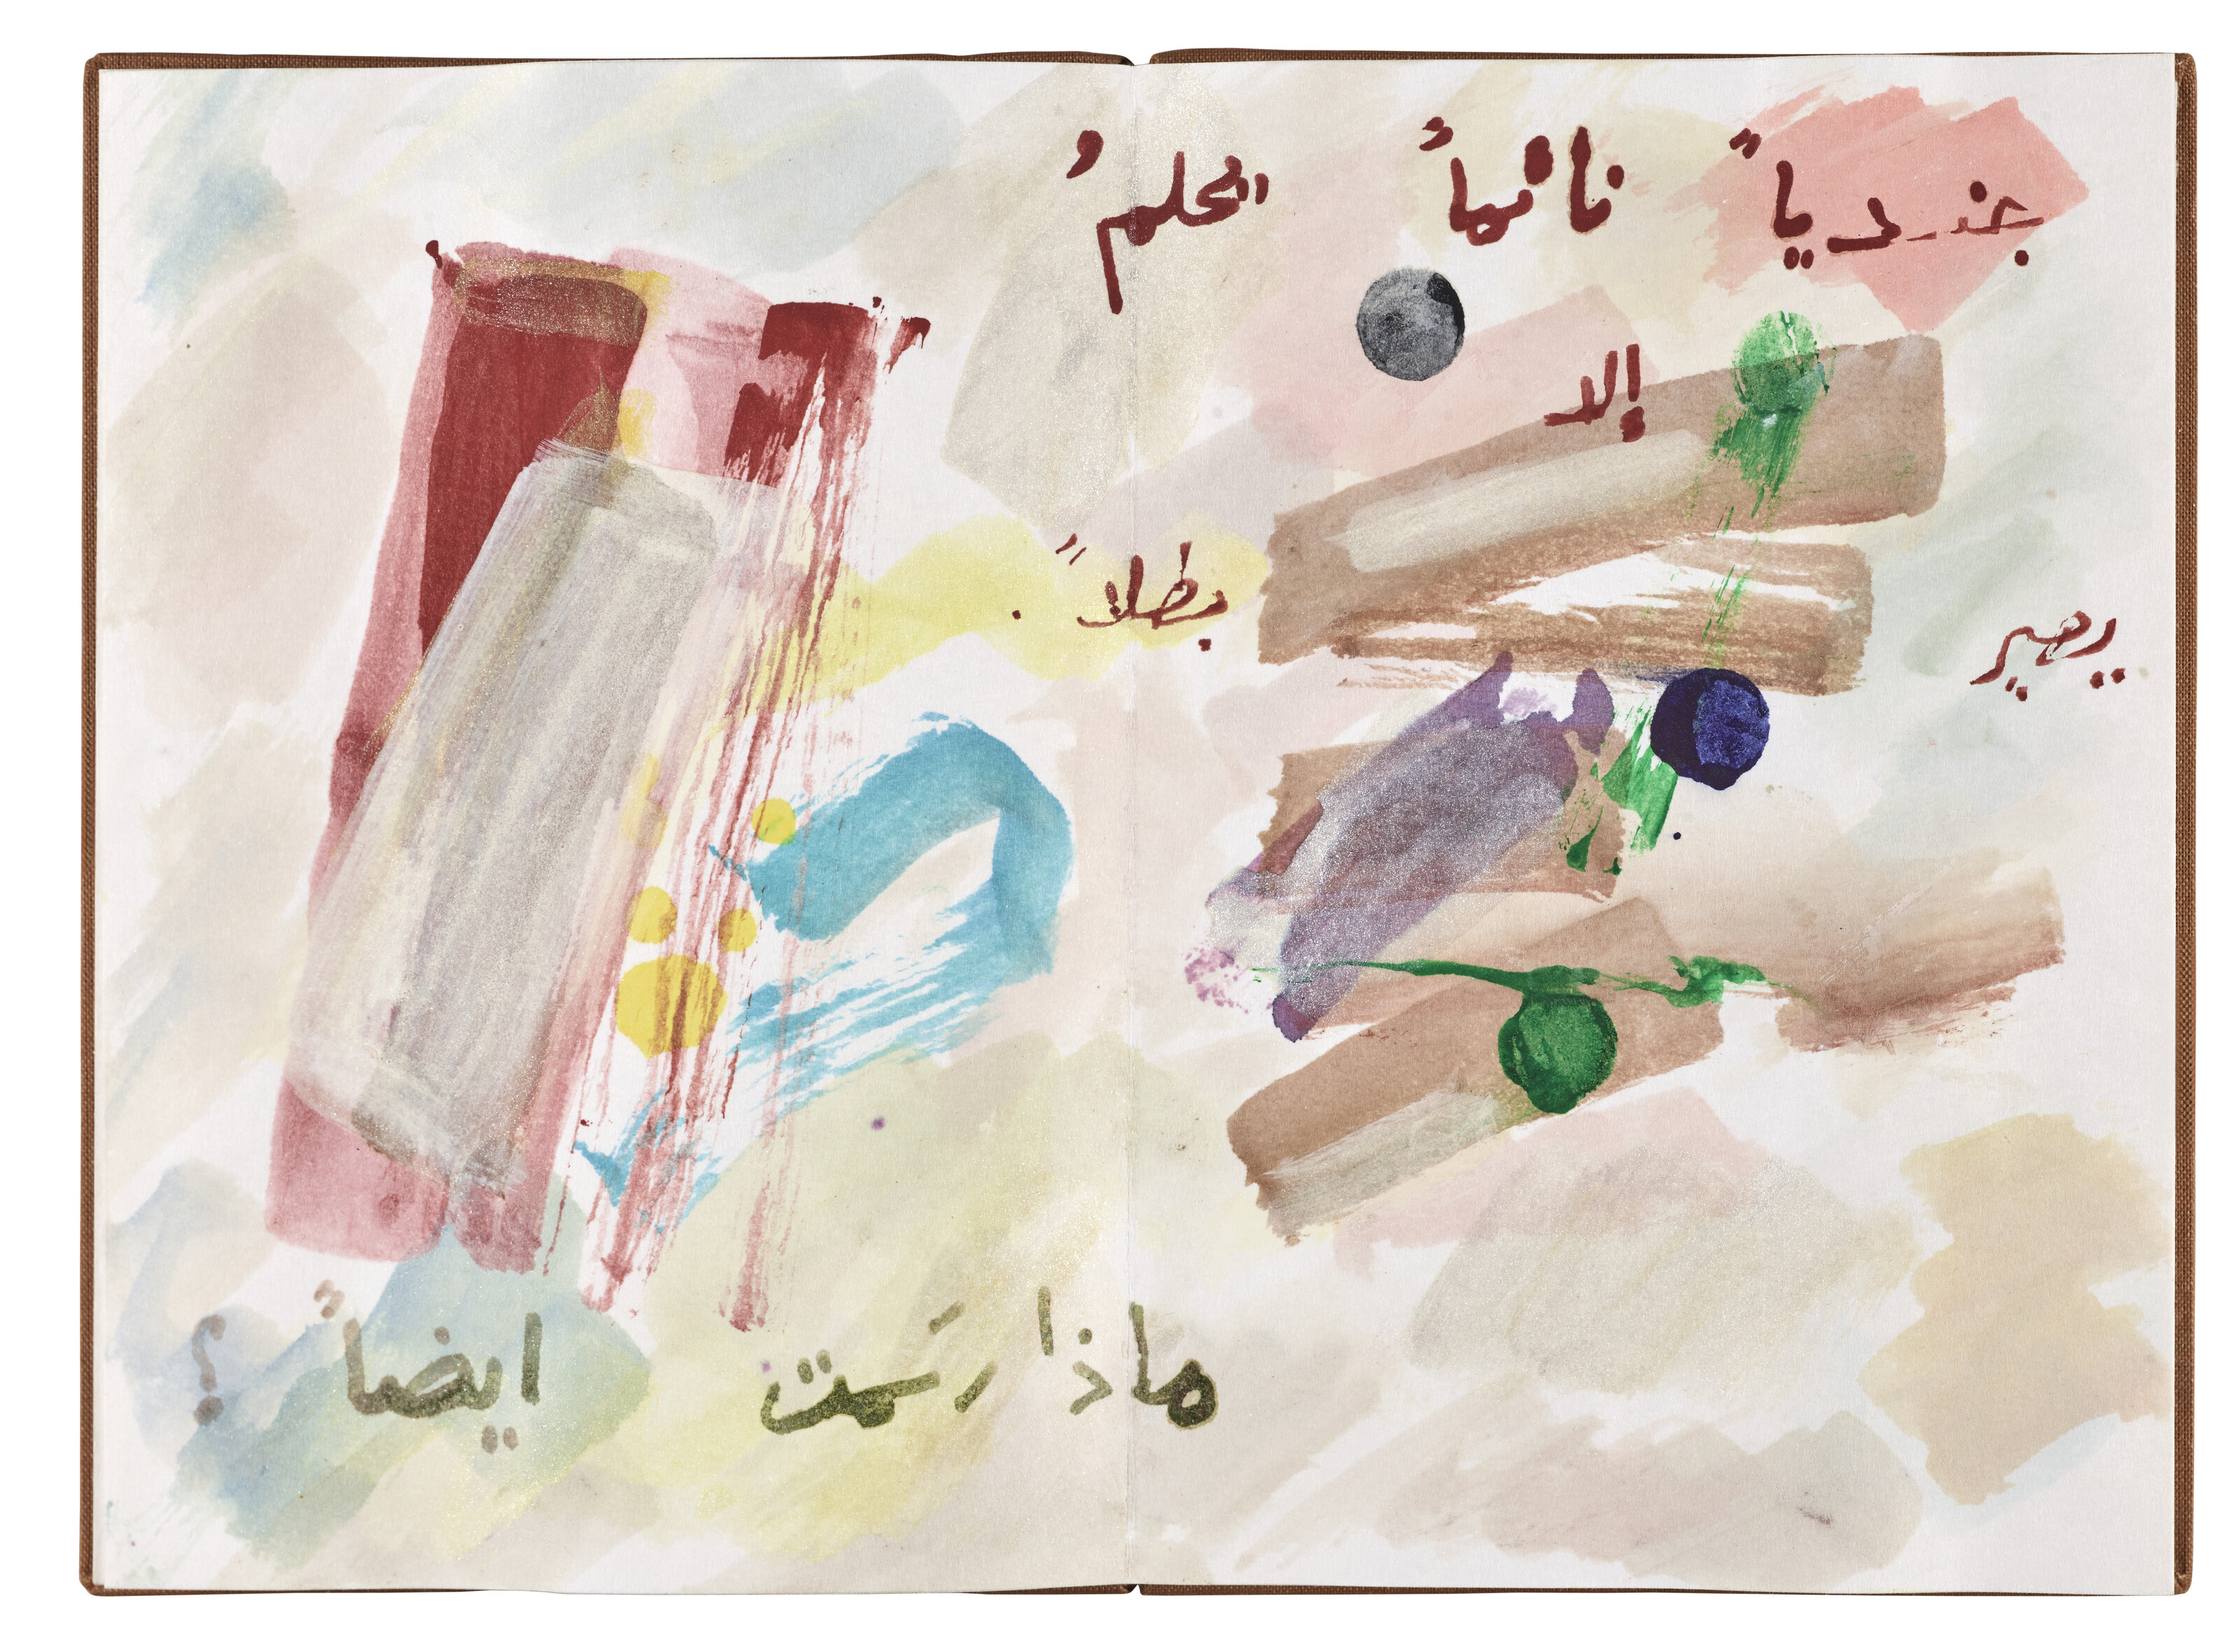 جندياً نائماً الحلمُ
إلا
يصير بطلاً .
ماذا رسَمت ايضاً ؟